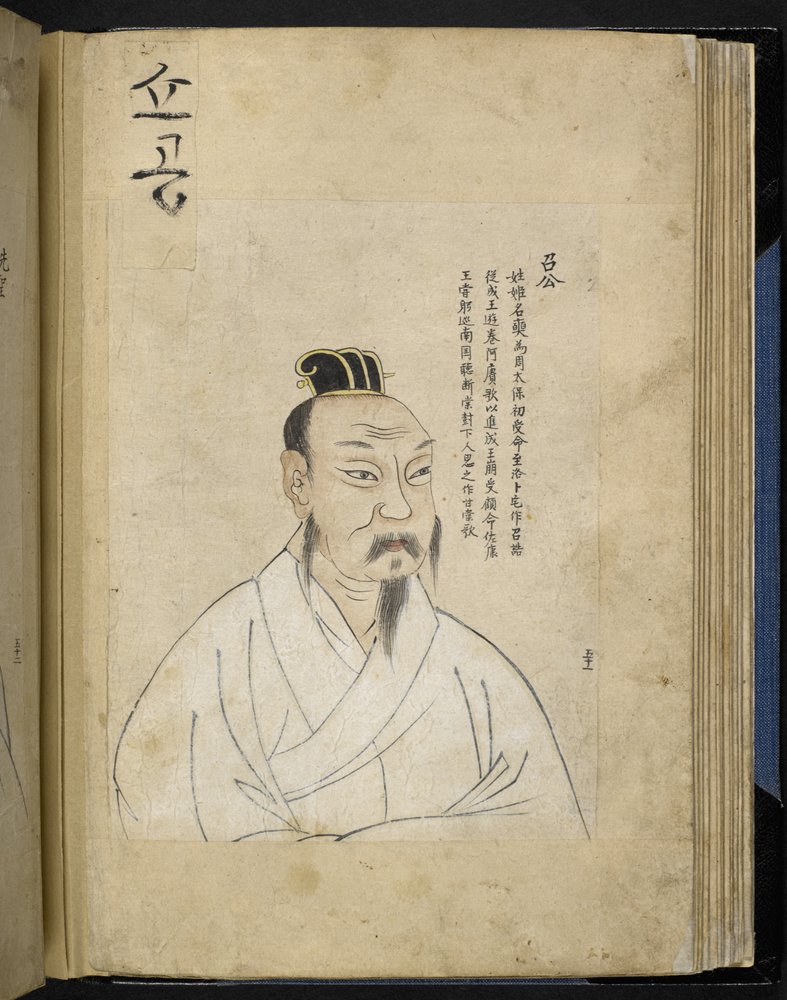 쇼공
召公
姓姬名奭為周太保初受命至洛卜宅作召誥
從成王遊卷阿賡歌以進成王崩受顧命佐康
王嘗躬巡南国聽断棠封下人思之作甘棠歌
五十一
五十二